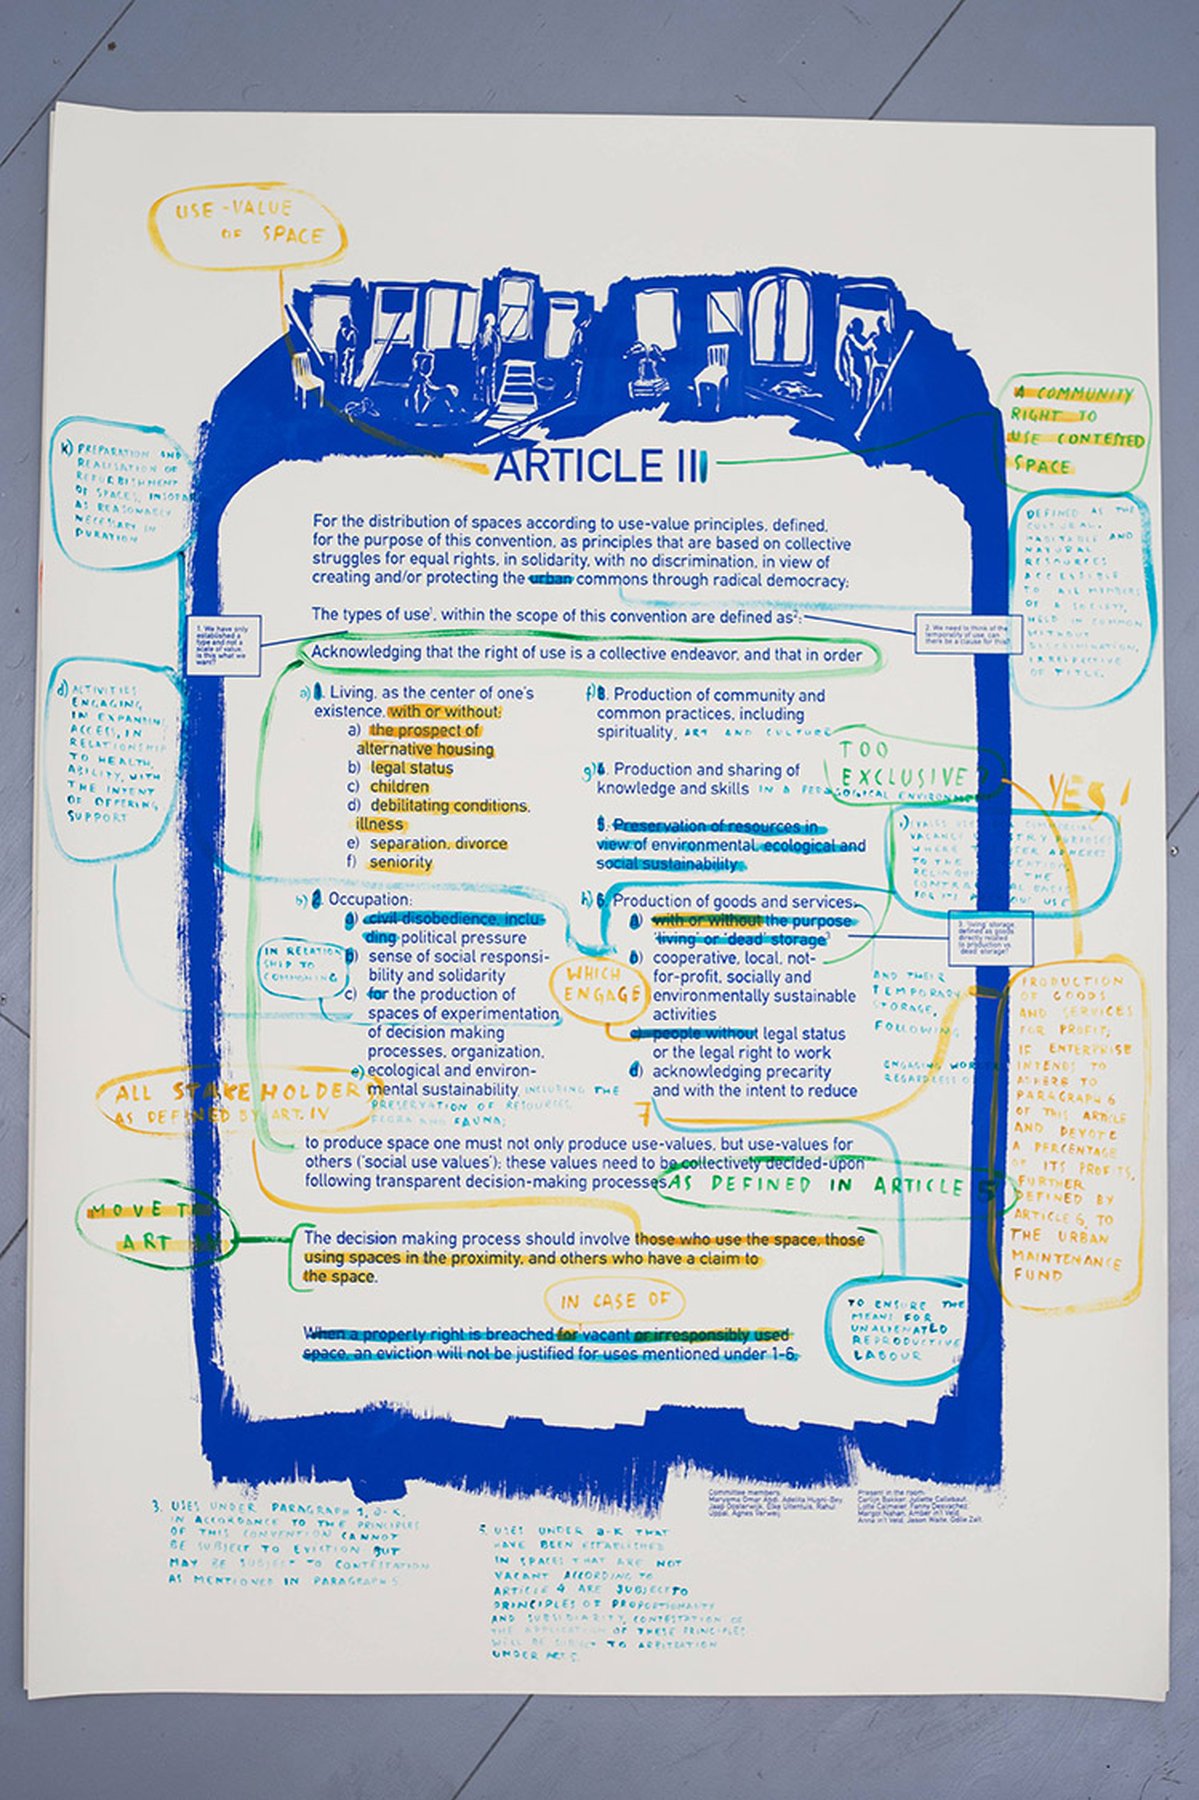 USE-VALUE
OF SPACE
A COMMUNITY
RIGHT TO
USE CONTESTED
SPACE
K) PREPARATION AND
REALISATION OF
REFURBISHMENT
OF SPACES, INSOFAR
AS REASONABLY
NECESSARY IN
DURATION
ARTICLE III
DEFINED AS THE
CULTURAL,
HABITABLE AND
NATURAL
RESOURCES
ACCESSIBLE
TO ALL MEMBERS
OF A SOCIETY,
HELD IN COMMON
WITHOUT
DISCRIMINATION,
IRRESPECTIVE
OF TITLE.
For the distribution of spaces according to use-value principles, defined,
for the purpose of this convention, as principles that are based on collective
struggles for equal rights, in solidarity, with no discrimination, in view of
creating and/or protecting the urban commons through radical democracy;
The types of use¹, within the scope of this convention are defined as²:
1. We have only
established a
type and not a
scale of value.
Is this what we
want?
2. We need to think of the
temporality of use, can
there be a clause for this?
Acknowledging that the right of use is a collective endeavor, and that in order
d) ACTIVITIES
ENGAGING
IN EXPANDING
ACCESS, IN
RELATIONSHIP
TO HEALTH,
ABILITY, WITH
THE INTENT
OF OFFERING
SUPPORT
a) 1. Living, as the center of one's
existence, with or without:
a) the prospect of
alternative housing
b) legal status
c) children
d) debilitating conditions,
illness
e) separation, divorce
f) seniority
b) 2. Occupation:
a) civil disobedience, inclu-
ding political pressure
b) sense of social responsi-
bility and solidarity
c) for the production of
spaces of experimentation
of decision making
processes, organization,
e) ecological and environ-
mental sustainability, INCLUDING THE
PRESERVATION OF RESOURCES,
FLORA AND FAUNA;
IN RELATION
SHIP TO
COMMONING
f) 3. Production of community and
common practices, including
spirituality, ART AND CULTURE
g) 4. Production and sharing of
knowledge and skills IN A PEDAGOGICAL ENVIRONMENT
TOO
EXCLUSIVE?
YES!
5. Preservation of resources in
view of environmental, ecological and
social sustainability
h) 6. Production of goods and services:
a) with or without the purpose
'living' or 'dead' storage³
b) cooperative, local, not-
for-profit, socially and
environmentally sustainable
activities
c) people without legal status
or the legal right to work
d) acknowledging precarity
and with the intent to reduce
WHICH
ENGAGE
3. 'living' storage
defined as goods
directly related
to production vs
'dead' storage?
AND THEIR
TEMPORARY
STORAGE,
FOLLOWING
REGARDLESS
PRODUCTION
OF GOODS
AND SERVICES
FOR PROFIT;
IF ENTERPRISE
INTENDS TO
ADHERE TO
PARAGRAPH 6
OF THIS ARTICLE
AND DEVOTE
A PERCENTAGE
OF ITS PROFITS,
FURTHER
DEFINED BY
ARTICLE 6, TO
THE URBAN
MAINTENANCE
FUND
ALL STAKEHOLDER
AS DEFINED BY ART. IV
7
to produce space one must not only produce use-values, but use-values for
others ('social use values'); these values need to be collectively decided-upon
following transparent decision-making processes AS DEFINED IN ARTICLE 5
MOVE TO
ART
The decision making process should involve those who use the space, those
using spaces in the proximity, and others who have a claim to
the space.
IN CASE OF
When a property right is breached for vacant or irresponsibly used
space, an eviction will not be justified for uses mentioned under 1-6.
TO ENSURE THE
MEANS FOR
UNALIENATED
REPRODUCTIVE
LABOUR
3. USES UNDER PARAGRAPH 1, a-K,
IN ACCORDANCE TO THE PRINCIPLES
OF THIS CONVENTION CANNOT
BE SUBJECT TO EVICTION BUT
MAY BE SUBJECT TO CONTESTATION
AS MENTIONED IN PARAGRAPH 5.
5. USES UNDER a-K THAT
HAVE BEEN ESTABLISHED
IN SPACES THAT ARE NOT
VACANT ACCORDING TO
ARTICLE 4 ARE SUBJECT TO
PRINCIPLES OF PROPORTIONALITY
AND SUBSIDIARITY, CONTESTATION OF
THE APPLICATION OF THESE PRINCIPLES
WILL BE SUBJECT TO ARBITRATION
UNDER ART 5.
Committee members:
Present in the room: